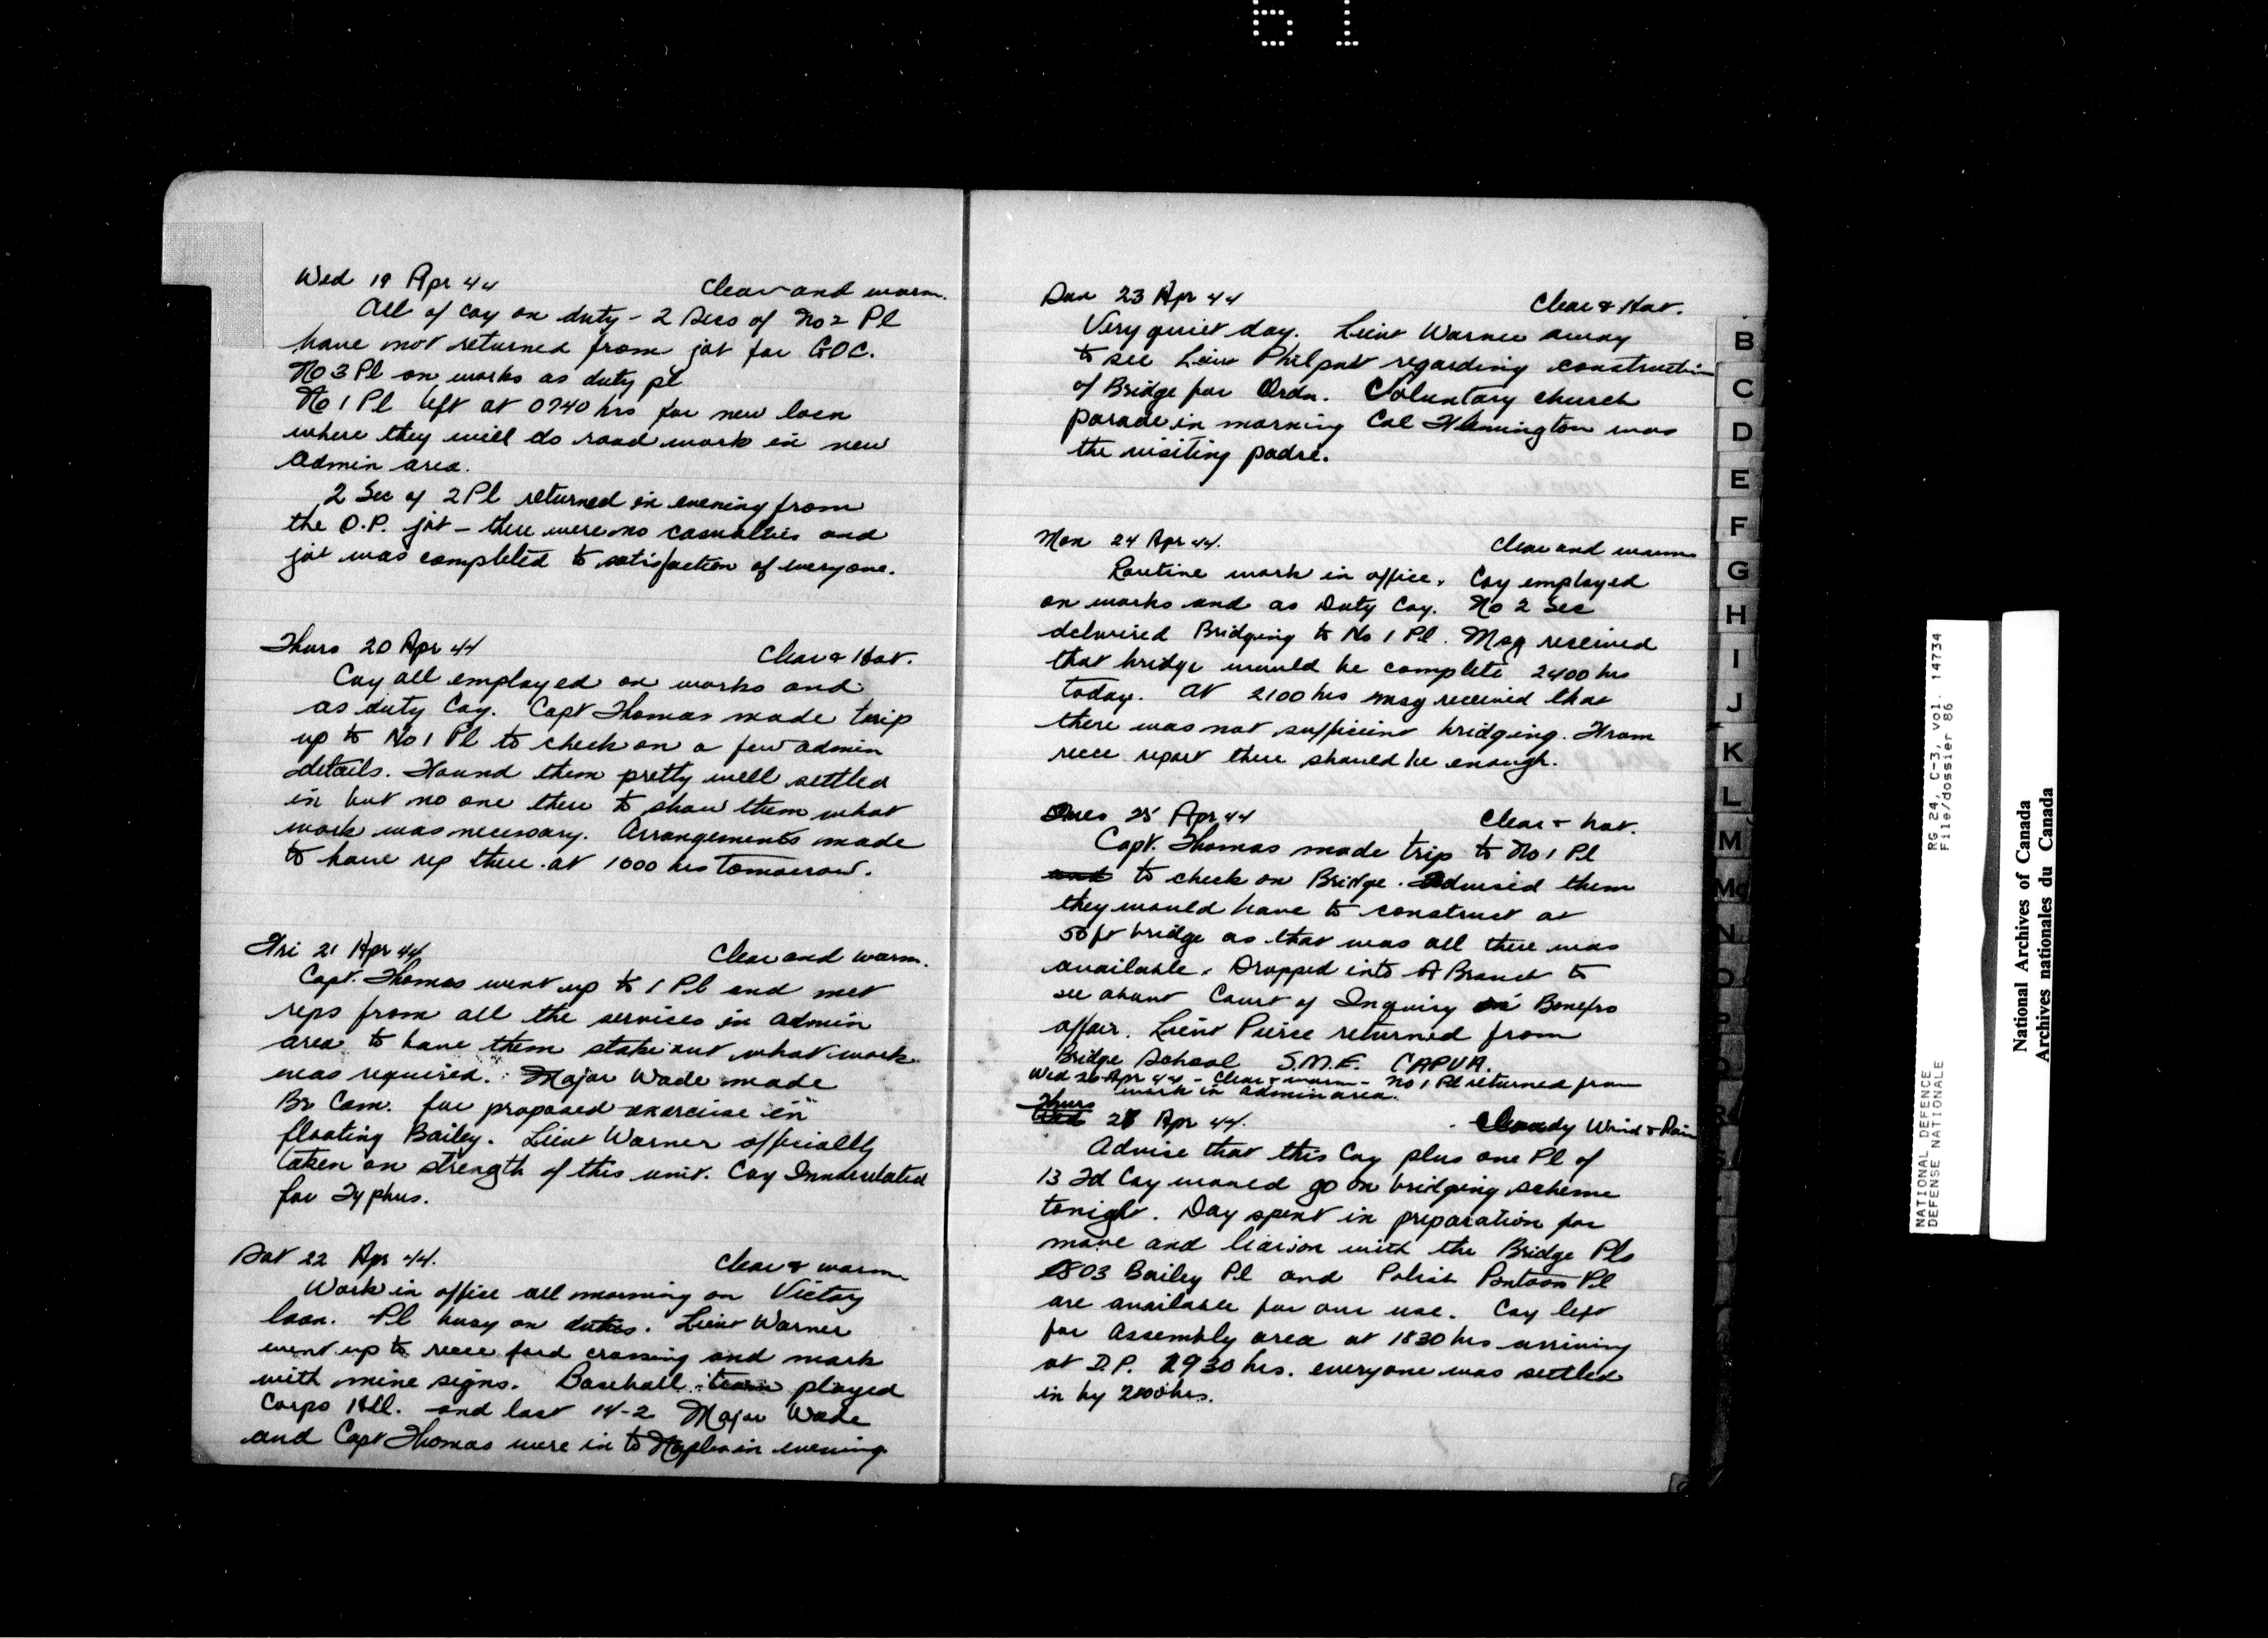 61
Wed 19 Apr 44 Clear and warm.
All of coy on duty - 2 Secs of No 2 Pl
have not returned from job for GOC.
No 3 Pl on works as duty pl
No 1 Pl left at 0740 hrs for new locn
where they will do road work in new
Admin area.
2 Sec of 2 Pl returned in evening from
the O.P. job - there were no casualties and
job was completed to satisfaction of everyone.
Thurs 20 Apr 44 Clear & Hot.
Coy all employed on works and
as duty Coy. Capt Thomas made trip
up to No 1 Pl to check on a few admin
details. Found them pretty well settled
in but no one there to show them what
work was necessary. Arrangements made
to have rep there at 1000 hrs tomorrow.
Fri 21 Apr 44 Clear and warm.
Capt. Thomas went up to 1 Pl and met
reps from all the services in admin
area to have them stake out what work
was required. Major Wade made
Br Com. for proposed exercise in
floating Bailey. Lieut Warner officially
taken on strength of this unit. Coy Innoculated
for Typhus.
Sat 22 Apr 44. Clear & warm
Work in office all morning on Victory
loan. Pl busy on duties. Lieut Warner
went up to recce ford crossing and mark
with mine signs. Baseball team played
Corps and lost 14-2 Major Wade
and Capt Thomas were in to Naples in evening
Sun 23 Apr 44 Clear & Hot.
Very quiet day. Lieut Warner away
to see Lieut Philpott regarding construction
of Bridge for Ordn. Voluntary church
parade in morning was
the visiting padre.
Mon 24 Apr 44. Clear and warm
Routine work in office. Coy employed
on works and as Duty Coy. No 2 Sec
delivered Bridging to No 1 Pl. Msg received
that bridge would be complete 2400 hrs
today. At 2100 hrs msg received that
there was not sufficient bridging. From
recce report there should be enough.
Tues 25 Apr 44 Clear + hot.
Capt. Thomas made trip to No 1 Pl
and to check on Bridge. Advised them
they would have to construct a
50 ft bridge as that was all there was
available. Dropped into A Branch to
see about Court of Inquiry in Bonefro
affair. Lieut Pierce returned from
Bridge School S.M.E. CAPUA.
Wed 26 Apr 44 - Clear + warm - No 1 Pl returned from
work in admin area.
Thurs
Wed 27 Apr 44. Cloudy Wind & Rain
Advise that this Coy plus one Pl of
13 Fd Coy would go on bridging scheme
tonight. Day spent in preparation for
move and liaison with the Bridge Pls
1803 Bailey Pl and Polish Pontoon Pl
are available for our use. Coy left
for Assembly area at 1830 hrs arriving
at D.P. 1930 hrs. everyone was settled
in by 2000 hrs.
B
C
D
E
F
G
H
I
J
K
L
M
Mc
N
O
P
NATIONAL DEFENCE RG 24, C-3, vol. 14734
DEFENSE NATIONALE File/dossier 86
National Archives of Canada
Archives nationales du Canada